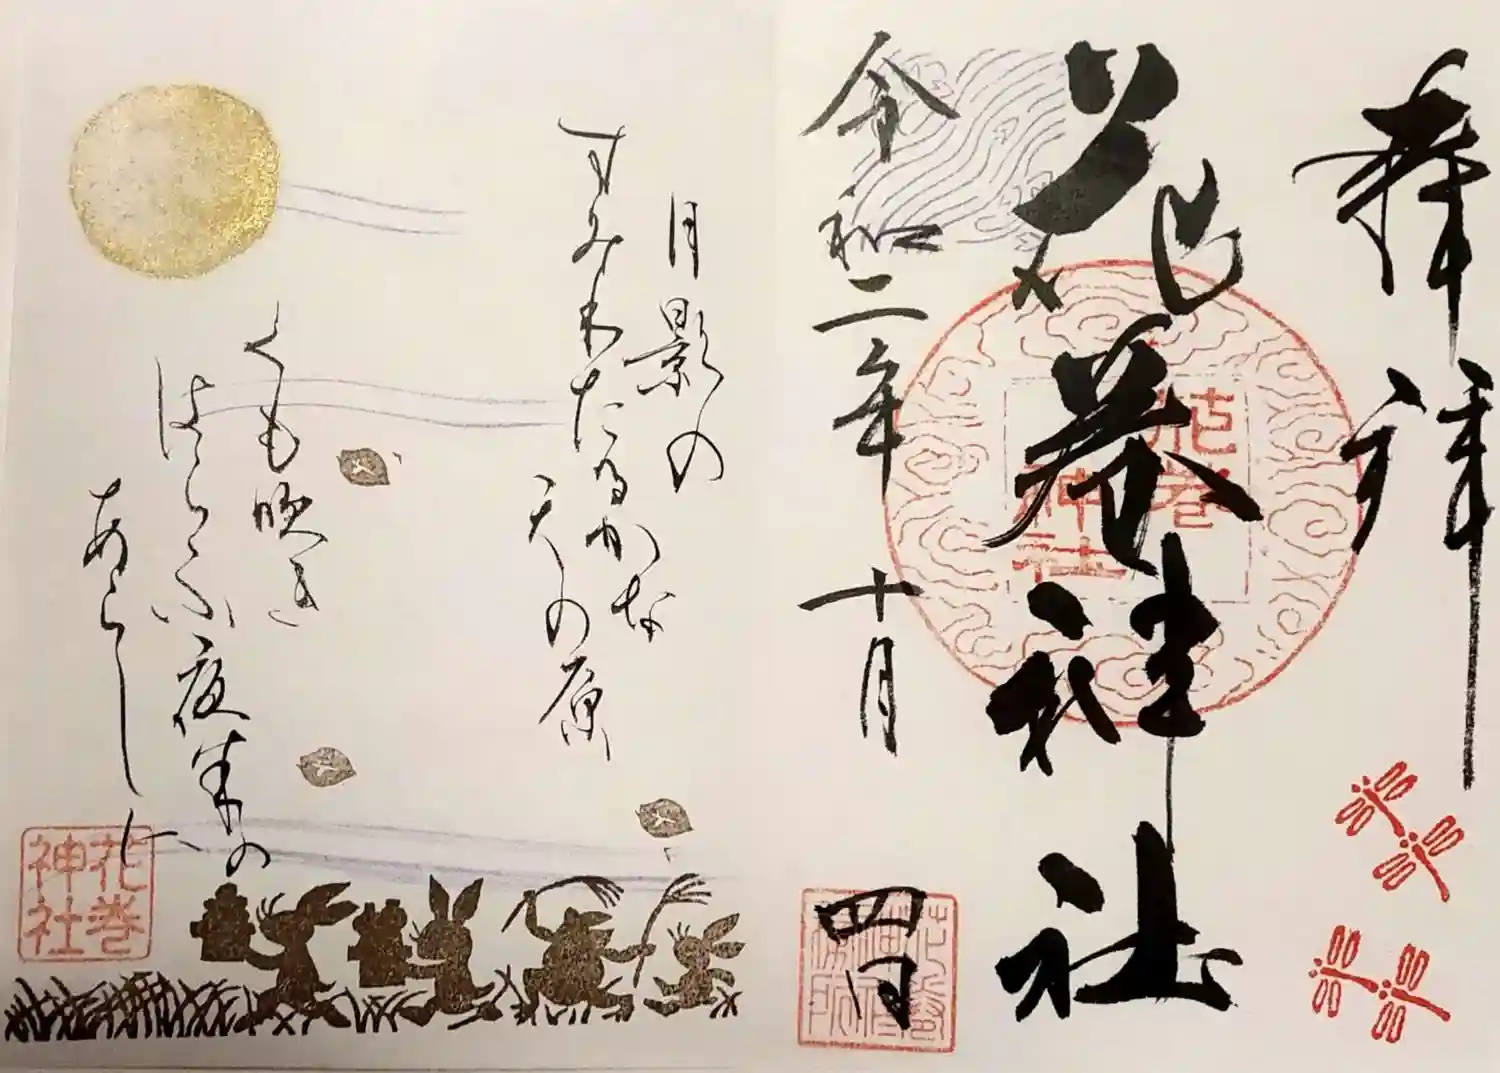 奉拝
花巻神社
令和二年十月四日
花巻
神社
月影の
すみわたるかな
天の原
くも吹き
はらふ夜半の
あらしに
花巻
神社